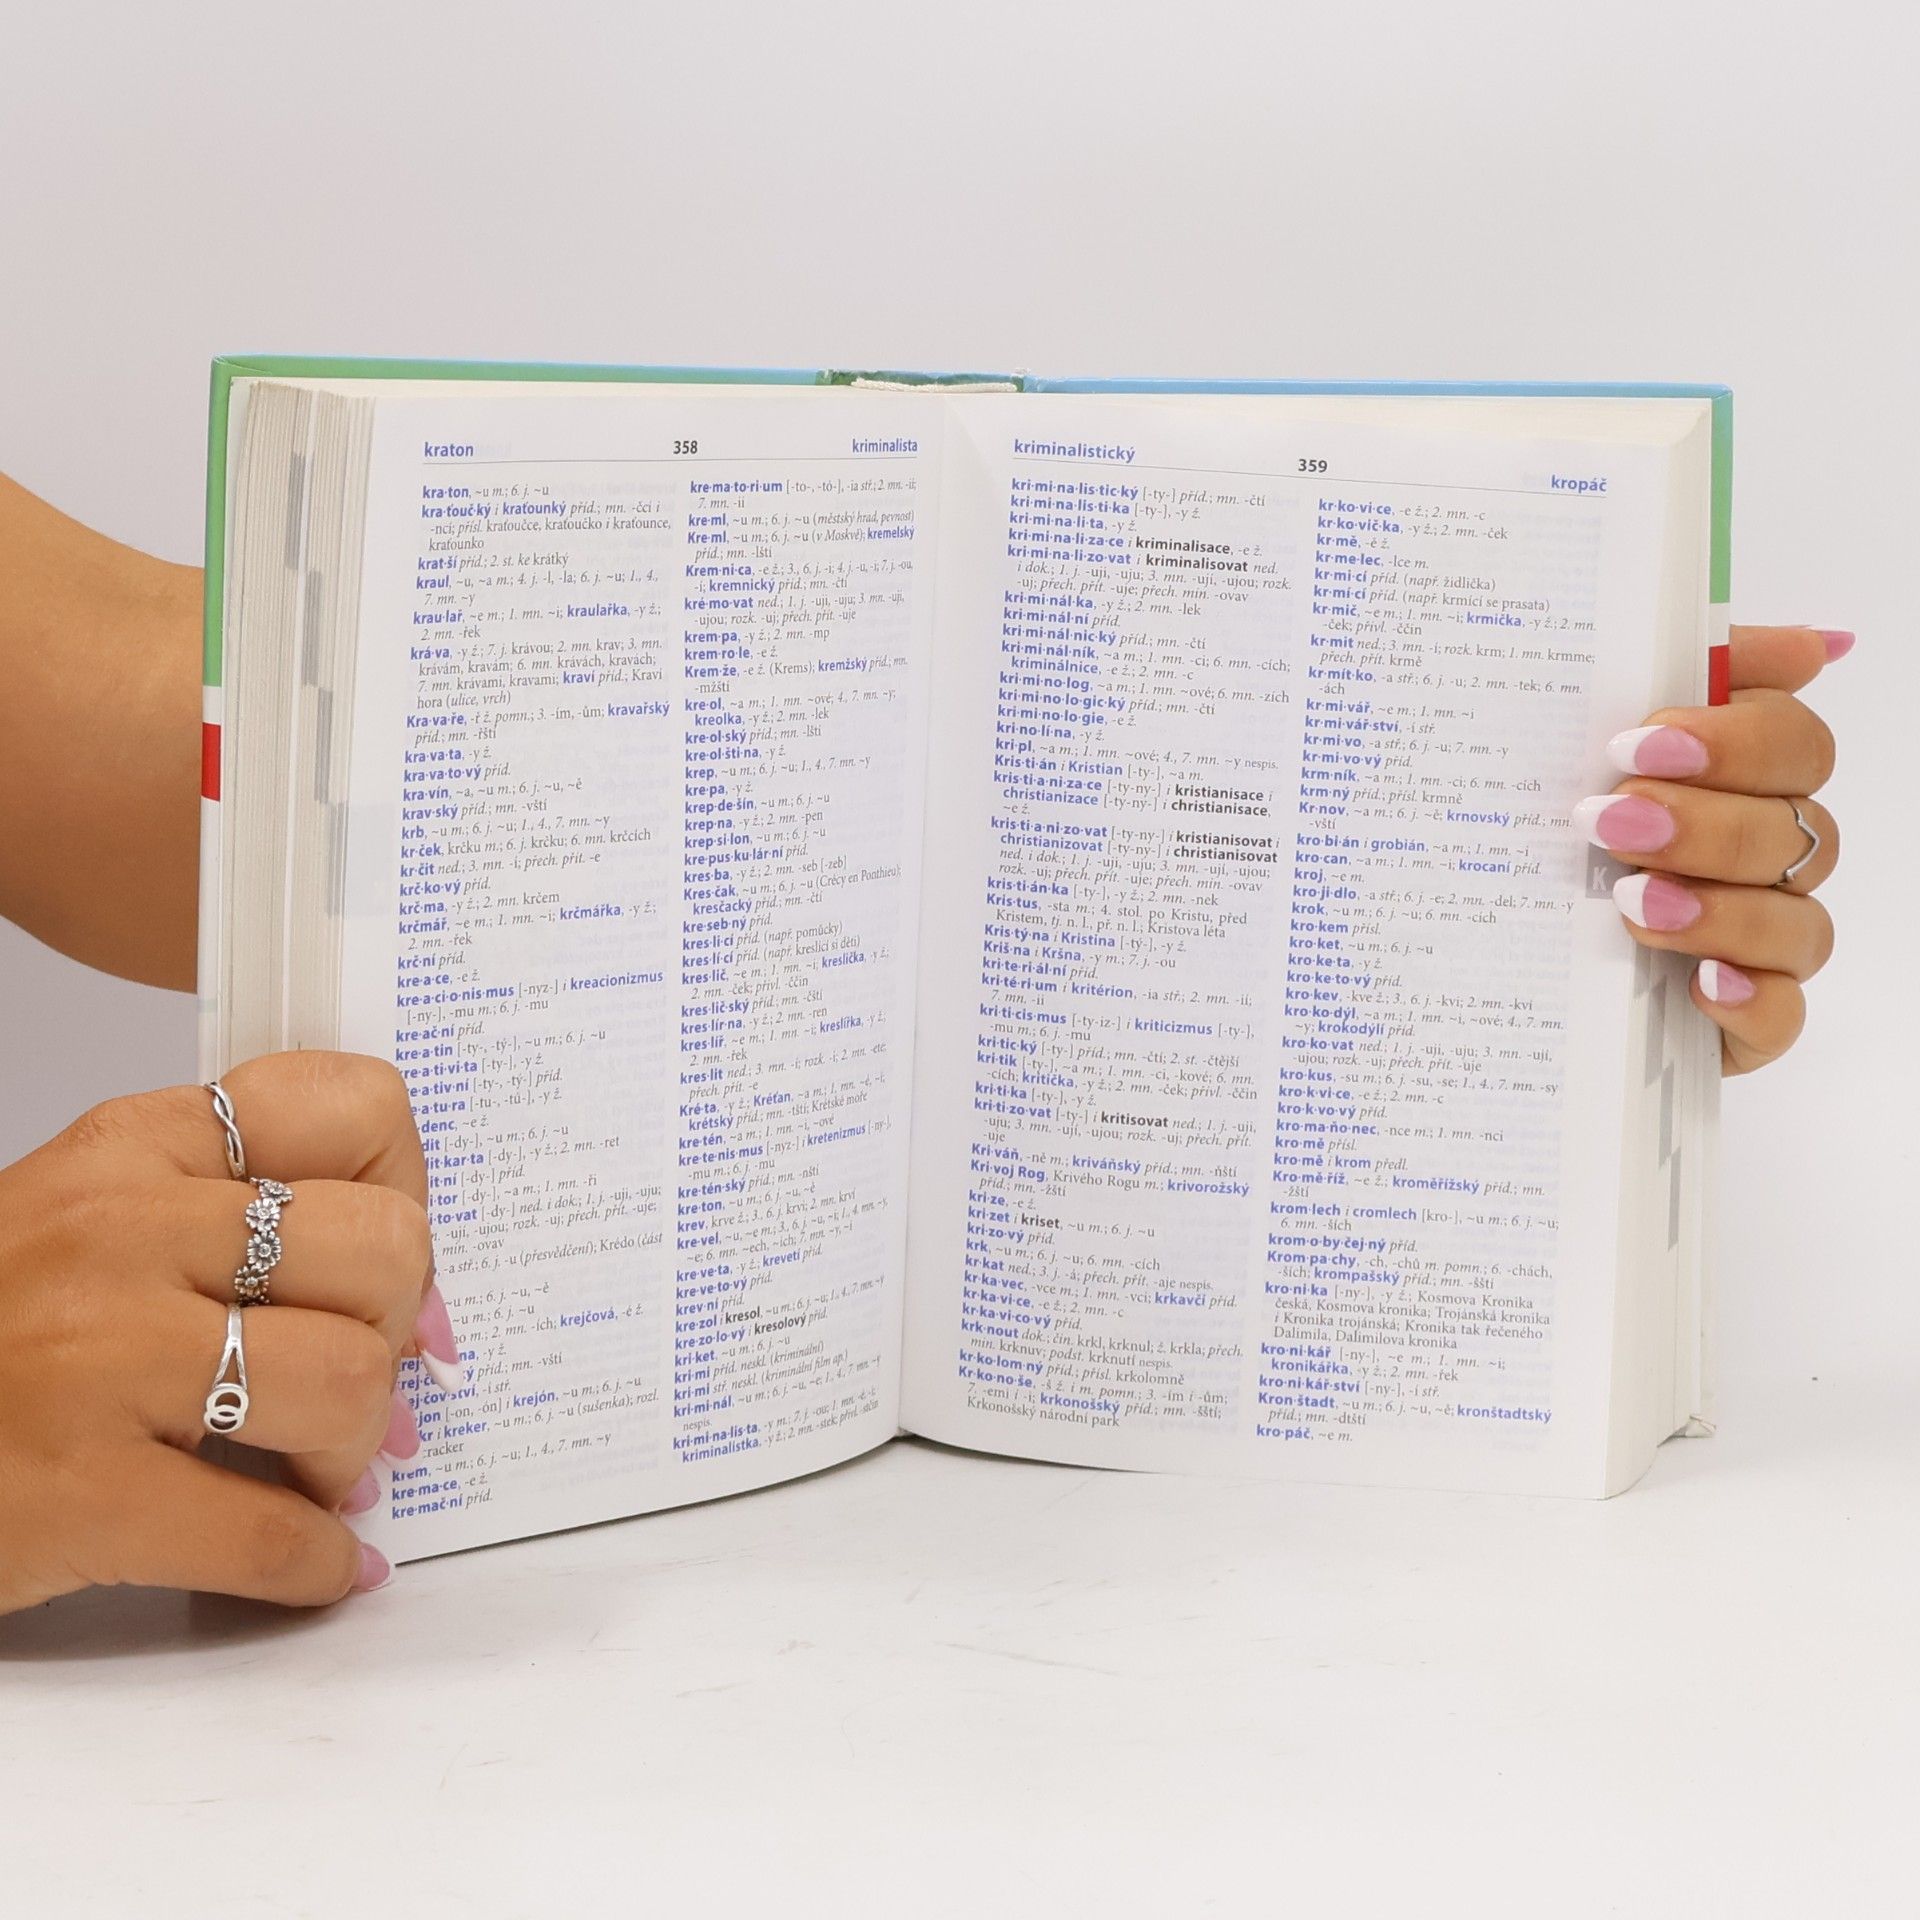 kraton 358 kriminalista
kra·ton, ~u m.; 6. j. ~u
kra·ťouč·ký i kraťounký příd.; mn. -čcí i
-ncí; přísl. kraťoučce, kraťoučko i kraťounce,
kraťounko
krat·ší příd.; 2. st. ke krátký
kraul, ~u, ~a m.; 4. j. -l, -la; 6. j. ~u; 1., 4.,
7. mn. ~y
krau·lař, ~e m.; 1. mn. ~i; kraulařka, -y ž.;
2. mn. -řek
krá·va, -y ž.; 7. j. krávou; 2. mn. krav; 3. mn.
krávám, kravám; 6. mn. krávách, kravách;
7. mn. krávami, kravami; kraví příd.; Kraví
hora (ulice, vrch)
Kra·va·ře, -ř ž. pomn.; 3. -ím, -ům; kravařský
příd.; mn. -řští
kra·va·ta, -y ž.
kra·va·to·vý příd.
kra·vín, ~a, ~u m.; 6. j. ~u, ~ě
krav·ský příd.; mn. -vští
krb, ~u m.; 6. j. ~u; 1., 4., 7. mn. ~y
kr·ček, krčku m.; 6. j. krčku; 6. mn. krčcích
kr·čit ned.; 3. mn. -í; přech. přít. -e
krč·ko·vý příd.
krč·ma, -y ž.; 2. mn. krčem
krčmář, ~e m.; 1. mn. ~i; krčmářka, -y ž.;
2. mn. -řek
krč·ní příd.
kre·a·ce, -e ž.
kre·a·ci·o·nis·mus [-nyz-] i kreacionizmus
[-ny-], -mu m.; 6. j. -mu
kre·ač·ní příd.
kre·a·tin [-ty-, -tý-], ~u m.; 6. j. ~u
re·a·ti·vi·ta [-ty-], -y ž.
e·a·tiv·ní [-ty-, -tý-] příd.
e·a·tu·ra [-tu-, -tú-], -y ž.
denc, ~e ž.
dit [-dy-], ~u m.; 6. j. ~u
dit·kar·ta [-dy-], -y ž.; 2. mn. -ret
it·ní [-dy-] příd.
i·tor [-dy-], ~a m.; 1. mn. -ři
i·to·vat [-dy-] ned. i dok.; 1. j. -uji, -uju;
. -ují, -ujou; rozk. -uj; přech. přít. -uje;
. min. -ovav
, -a stř.; 6. j. -u (přesvědčení); Krédo (část
~u m.; 6. j. ~u, ~ě
~u m.; 6. j. ~u
ho m.; 2. mn. -ích; krejčová, -é ž.
na, -y ž.
ý příd.; mn. -vští
ej·čov·ství, -í stř.
jon [-on, -ón] i krejón, ~u m.; 6. j. ~u
kr i kreker, ~u m.; 6. j. ~u (sušenka); rozl.
cracker
krém, ~u m.; 6. j. ~u; 1., 4., 7. mn. ~y
kre·ma·ce, -e ž.
kre·mač·ní příd.
kre·ma·to·ri·um [-to-, -tó-], -ia stř.; 2. mn. -ií;
7. mn. -ii
kre·ml, ~u m.; 6. j. ~u (městský hrad, pevnost)
Kre·ml, ~u m.; 6. j. ~u (v Moskvě); kremelský
příd.; mn. -lští
Krem·ni·ca, -e ž.; 3., 6. j. -i; 4. j. -u, -i; 7. j. -ou,
-í; kremnický příd.; mn. -čtí
kré·mo·vat ned.; 1. j. -uji, -uju; 3. mn. -ují,
-ujou; rozk. -uj; přech. přít. -uje
krem·pa, -y ž.; 2. mn. -mp
krem·ro·le, -e ž.
Krem·že, -e ž. (Krems); kremžský příd.; mn.
-mžští
kre·ol, ~a m.; 1. mn. ~ové; 4., 7. mn. ~y;
kreolka, -y ž.; 2. mn. -lek
kre·ol·ský příd.; mn. -lští
kre·ol·šti·na, -y ž.
krep, ~u m.; 6. j. ~u; 1., 4., 7. mn. ~y
kre·pa, -y ž.
krep·de·šín, ~u m.; 6. j. ~u
krep·na, -y ž.; 2. mn. -pen
krep·si·lon, ~u m.; 6. j. ~u
kre·pus·ku·lár·ní příd.
kres·ba, -y ž.; 2. mn. -seb [-zeb]
Kres·čak, ~u m.; 6. j. ~u (Crécy en Ponthieu);
kresčacký příd.; mn. -čtí
kre·seb·ný příd.
kres·li·cí příd. (např. pomůcky)
kres·lí·cí příd. (např. kreslící si děti)
kres·lič, ~e m.; 1. mn. ~i; kreslička, -y ž.;
2. mn. -ček; přivl. -ččin
kres·lič·ský příd.; mn. -čští
kres·lír·na, -y ž.; 2. mn. -ren
kres·líř, ~e m.; 1. mn. ~i; kreslířka, -y ž.;
2. mn. -řek
kres·lit ned.; 3. mn. -í; rozk. -i; 2. mn. -ete;
přech. přít. -e
Kré·ta, -y ž.; Kréťan, ~a m.; 1. mn. -é, -i;
krétský příd.; mn. -tští; Krétské moře
kre·tén, ~a m.; 1. mn. ~i, ~ové
kre·te·nis·mus [-nyz-] i kretenizmus [-ny-],
-mu m.; 6. j. -mu
kre·tén·ský příd.; mn. -nští
kre·ton, ~u m.; 6. j. ~u, ~ě
krev, krve ž.; 3., 6. j. krvi; 2. mn. krví
kre·vel, ~u, ~e m.; 3., 6. j. ~u, ~i; 1., 4. mn. ~y,
~e; 6. mn. ~ech, ~ích; 7. mn. ~y, ~i
kre·ve·ta, -y ž.; krevetí příd.
kre·ve·to·vý příd.
krev·ní příd.
kre·zol i kresol, ~u m.; 6. j. ~u; 1., 4., 7. mn. ~y
kre·zo·lo·vý i kresolový příd.
kri·ket, ~u m.; 6. j. ~u
kri·mi příd. neskl. (kriminální)
kri·mi stř. neskl. (kriminální film ap.)
kri·mi·nál, ~u m.; 6. j. ~u, ~e; 1., 4., 7. mn. ~y
nespis.
kri·mi·na·lis·ta, -y m.; 7. j. -ou; 1. mn. -é, -i;
kriminalistka, -y ž.; 2. mn. -stek; přivl. -stčin
kriminalistický 359 kropáč
kri·mi·na·lis·tic·ký [-ty-] příd.; mn. -čtí
kri·mi·na·lis·ti·ka [-ty-], -y ž.
kri·mi·na·li·ta, -y ž.
kri·mi·na·li·za·ce i kriminalisace, -e ž.
kri·mi·na·li·zo·vat i kriminalisovat ned.
i dok.; 1. j. -uji, -uju; 3. mn. -ují, -ujou; rozk.
-uj; přech. přít. -uje; přech. min. -ovav
kri·mi·nál·ka, -y ž.; 2. mn. -lek
kri·mi·nál·ní příd.
kri·mi·nál·nic·ký příd.; mn. -čtí
kri·mi·nál·ník, ~a m.; 1. mn. -ci; 6. mn. -cích;
kriminálnice, -e ž.; 2. mn. -c
kri·mi·no·log, ~a m.; 1. mn. ~ové; 6. mn. -zích
kri·mi·no·lo·gic·ký příd.; mn. -čtí
kri·mi·no·lo·gie, -e ž.
kri·no·lí·na, -y ž.
kri·pl, ~a m.; 1. mn. ~ové; 4., 7. mn. ~y nespis.
Kris·ti·án i Kristian [-ty-], ~a m.
kris·ti·a·ni·za·ce [-ty-ny-] i kristianisace i
christianizace [-ty-ny-] i christianisace,
~e ž.
kris·ti·a·ni·zo·vat [-ty-ny-] i kristianisovat i
christianizovat [-ty-ny-] i christianisovat
ned. i dok.; 1. j. -uji, -uju; 3. mn. -ují, -ujou;
rozk. -uj; přech. přít. -uje; přech. min. -ovav
kris·ti·án·ka [-ty-], -y ž.; 2. mn. -nek
Kris·tus, -sta m.; 4. stol. po Kristu, před
Kristem, tj. n. l., př. n. l.; Kristova léta
Kris·tý·na i Kristina [-tý-], -y ž.
Kriš·na i Kršna, -y m.; 7. j. -ou
kri·te·ri·ál·ní příd.
kri·té·ri·um i kritérion, -ia stř.; 2. mn. -ií;
7. mn. -ii
kri·ti·cis·mus [-ty-iz-] i kriticizmus [-ty-],
-mu m.; 6. j. -mu
kri·tic·ký [-ty-] příd.; mn. -čtí; 2. st. -čtější
kri·tik [-ty-], ~a m.; 1. mn. -ci, -kové; 6. mn.
-cích; kritička, -y ž.; 2. mn. -ček; přivl. -ččin
kri·ti·ka [-ty-], -y ž.
kri·ti·zo·vat [-ty-] i kritisovat ned.; 1. j. -uji,
-uju; 3. mn. -ují, -ujou; rozk. -uj; přech. přít.
-uje
Kri·váň, -ně m.; kriváňský příd.; mn. -ňští
Kri·voj Rog, Krivého Rogu m.; krivorožský
příd.; mn. -žští
kri·ze, -e ž.
kri·zet i kriset, ~u m.; 6. j. ~u
kri·zo·vý příd.
krk, ~u m.; 6. j. ~u; 6. mn. -cích
kr·kat ned.; 3. j. -á; přech. přít. -aje nespis.
kr·ka·vec, -vce m.; 1. mn. -vci; krkavčí příd.
kr·ka·vi·ce, -e ž.; 2. mn. -c
kr·ka·vi·co·vý příd.
krk·nout dok.; čin. krkl, krknul; ž. krkla; přech.
min. krknuv; podst. krknutí nespis.
kr·ko·lom·ný příd.; přísl. krkolomně
Kr·ko·no·še, -š ž. i m. pomn.; 3. -ím i -ům;
7. -emi i -i; krkonošský příd.; mn. -šští;
Krkonošský národní park
kr·ko·vi·ce, -e ž.; 2. mn. -c
kr·ko·vič·ka, -y ž.; 2. mn. -ček
kr·mě, -ě ž.
kr·me·lec, -lce m.
kr·mi·cí příd. (např. židlička)
kr·mí·cí příd. (např. krmící se prasata)
kr·mič, ~e m.; 1. mn. ~i; krmička, -y ž.; 2. mn.
-ček; přivl. -ččin
kr·mit ned.; 3. mn. -í; rozk. krm; 1. mn. krmme;
přech. přít. krmě
kr·mít·ko, -a stř.; 6. j. -u; 2. mn. -tek; 6. mn.
-ách
kr·mi·vář, ~e m.; 1. mn. ~i
kr·mi·vář·ství, -í stř.
kr·mi·vo, -a stř.; 6. j. -u; 7. mn. -y
kr·mi·vo·vý příd.
krm·ník, ~a m.; 1. mn. -ci; 6. mn. -cích
krm·ný příd.; přísl. krmně
Kr·nov, ~a m.; 6. j. ~ě; krnovský příd.; mn.
-vští
kro·bi·án i grobián, ~a m.; 1. mn. ~i
kro·can, ~a m.; 1. mn. ~i; krocaní příd.
kroj, ~e m.
kro·ji·dlo, -a stř.; 6. j. -e; 2. mn. -del; 7. mn. -y
krok, ~u m.; 6. j. ~u; 6. mn. -cích
kro·kem přísl.
kro·ket, ~u m.; 6. j. ~u
kro·ke·ta, -y ž.
kro·ke·to·vý příd.
kro·kev, -kve ž.; 3., 6. j. -kvi; 2. mn. -kví
kro·ko·dýl, ~a m.; 1. mn. ~i, ~ové; 4., 7. mn.
~y; krokodýlí příd.
kro·ko·vat ned.; 1. j. -uji, -uju; 3. mn. -ují,
-ujou; rozk. -uj; přech. přít. -uje
kro·kus, -su m.; 6. j. -su, -se; 1., 4., 7. mn. -sy
kro·k·vi·ce, -e ž.; 2. mn. -c
kro·k·vo·vý příd.
kro·ma·ňo·nec, -nce m.; 1. mn. -nci
kro·mě přísl.
kro·mě i krom předl.
Kro·mě·říž, ~e ž.; kroměřížský příd.; mn.
-žští
krom·lech i cromlech [kro-], ~u m.; 6. j. ~u;
6. mn. -ších
krom·o·by·čej·ný příd.
Krom·pa·chy, -ch, -chů m. pomn.; 6. -chách,
-ších; krompašský příd.; mn. -šští
kro·ni·ka [-ny-], -y ž.; Kosmova Kronika
česká, Kosmova kronika; Trojánská kronika
i Kronika trojánská; Kronika tak řečeného
Dalimila, Dalimilova kronika
kro·ni·kář [-ny-], ~e m.; 1. mn. ~i;
kronikářka, -y ž.; 2. mn. -řek
kro·ni·kář·ství [-ny-], -í stř.
Kron·štadt, ~u m.; 6. j. ~u, ~ě; kronštadtský
příd.; mn. -dtští
kro·páč, ~e m.
K